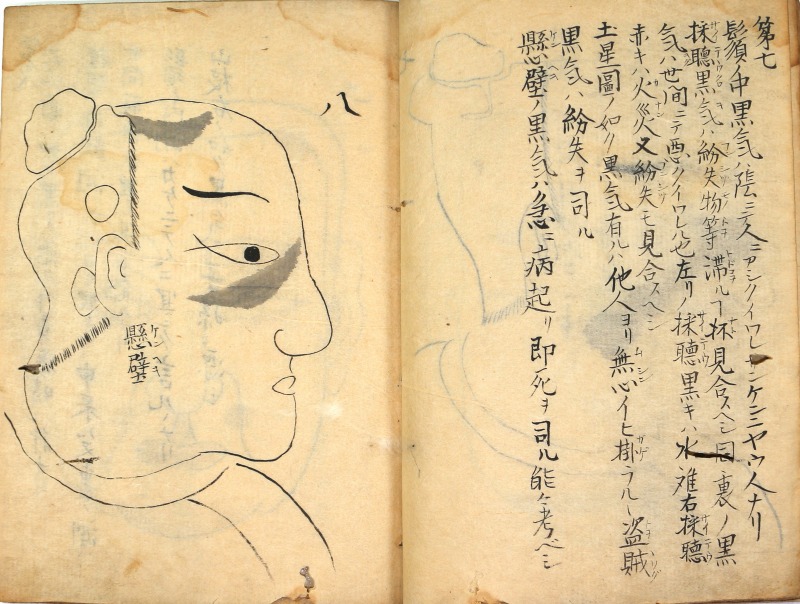 第七
鬚ノ中黒気ハ陰ニテ人ニアシクイワレ
採聴黒気ハ紛失物等滞ルヿ抔見合スヘシ同裏ノ黒
気ハ世間ニテ悪クイワレル也左リノ採聴黒キハ水難右採聴
赤キハ火災又紛失モ見合スヘシ
土星圖ノ如ク黒気有ルハ他人ヨリ無心イヒ掛ラルヽ盗賊
黒気ハ紛失ヲ司ル
懸壁ノ黒気ハ急ニ病起リ即死ヲ司ル能々考ベシ
八
懸壁